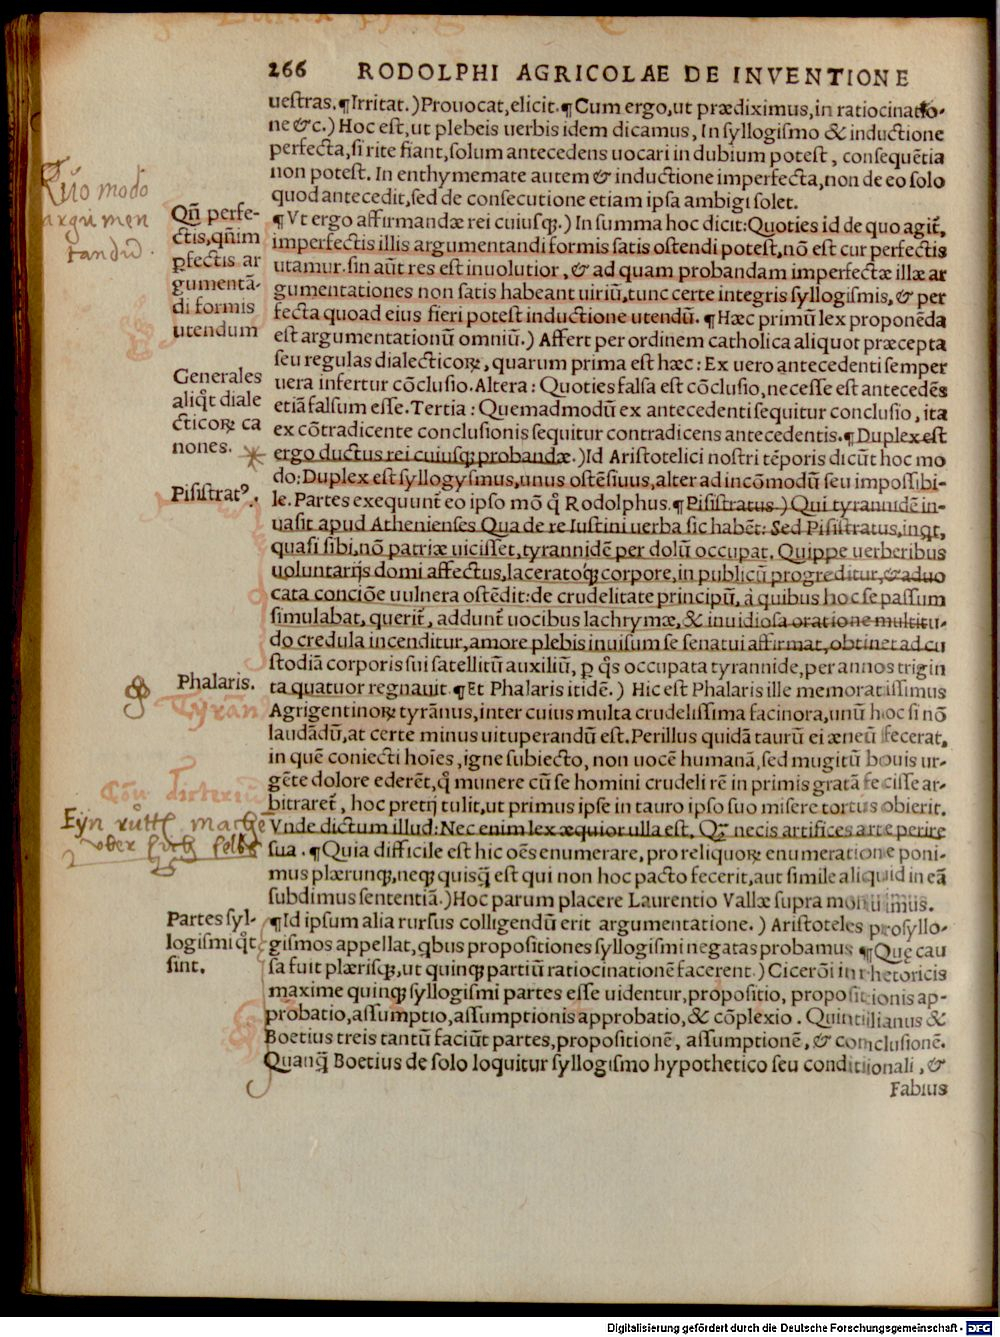 266 RODOLPHI AGRICOLAE DE INVENTIONE
uestras.¶Irritat.)Prouocat,elicit.¶Cum ergo,ut prædiximus,in ratiocinatio-
ne &c.) Hoc est,ut plebeis uerbis idem dicamus, In syllogismo & inductione
perfecta,si rite fiant,solum antecedens uocari in dubium potest, consequẽtia
non potest. In enthymemate autem & inductione imperfecta,non de eo solo
quod antecedit,sed de consecutione etiam ipsa ambigi solet.
Quo modo
argumen
tandũ.
Qñ perfe-
ctis,qñim
ꝑfectis ar
gumentã-
di formis
utendum
¶ Vt ergo affirmandæ rei cuiusꝗ.) In summa hoc dicit: Quoties id de quo agit᷑,
imperfectis illis argumentandi formis satis ostendi potest,nõ est cur perfectis
utamur. sin aũt res est inuolutior, & ad quam probandam imperfectæ illæ ar
gumentationes non satis habeant uiriũ,tunc certe integris syllogismis, & per
fecta quoad eius fieri potest inductione utendũ. ¶Hæc primũ lex proponẽda
est argumentationũ omniũ.) Affert per ordinem catholica aliquot præcepta
seu regulas dialecticoꝝ, quarum prima est hæc: Ex uero antecedenti semper
uera infertur cõclusio. Altera: Quoties falsa est cõclusio,necesse est antecedẽs
etiã falsum esse. Tertia: Quemadmodũ ex antecedenti sequitur conclusio, ita
ex cõtradicente conclusionis sequitur contradicens antecedentis.¶Duplex est
Generales
aliq̃t diale
cticoꝝ ca
nones.
ergo ductus rei cuiusꝗ probandæ.)Id Aristotelici nostri tẽporis dicũt hoc mo
do: Duplex est syllogysmus,unus ostẽsiuus,alter ad incõmodũ seu impossibi-
Pisistratꝰ.
le. Partes exequunt᷑ eo ipso mõ q̃ Rodolphus.¶Pisistratus.) Qui tyrannidẽ in-
uasit apud Athenienses Qua de re Iustini uerba sic habẽt: Sed Pisistratus,inqt,
quasi sibi,nõ patriæ uicisset,tyrannidẽ per dolũ occupat. Quippe uerberibus
uoluntarijs domi affectus,laceratoꝗ corpore,in publicũ progreditur,& aduo
cata conciõe uulnera ostẽdit: de crudelitate principũ, à quibus hoc se passum
simulabat, querit᷑, addunt᷑ uocibus lachrymæ, & inuidiosa oratione multitu-
do credula incenditur,amore plebis inuisum se senatui affirmat,obtinet ad cu
stodiã corporis sui satellitũ auxiliũ, ꝑ q̃s occupata tyrannide,per annos trigin
Phalaris.
ta quatuor regnauit.¶Et Phalaris itidẽ.) Hic est Phalaris ille memoratissimus
Tyran
Agrigentinoꝝ tyrãnus,inter cuius multa crudelissima facinora,unũ hoc si nõ
laudãdũ,at certe minus uituperandũ est. Perillus quidã taurũ ei æneũ fecerat,
in quẽ coniecti hoĩes,igne subiecto, non uocẽ humanã,sed mugitũ bouis ur-
gẽte dolore ederẽt,q̃ munere cũ se homini crudeli rẽ in primis gratã fecisse ar-
bitraret᷑, hoc pretij tulit,ut primus ipse in tauro ipso suo misere tortus obierit.
Vnde dictum illud: Nec enim lex æquior ulla est, Qꝫ necis artifices arte perire
sua. ¶Quia difficile est hic oẽs enumerare, pro reliquoꝝ enumeratione poni-
mus plærunꝗ,neꝗ quisq̃ est qui non hoc pacto fecerit,aut simile aliquid in eã
subdimus sententiã.)Hoc parum placere Laurentio Vallæ supra monuimus.
Partes syl-
logismi q̃t
sint.
¶Id ipsum alia rursus colligendũ erit argumentatione.) Aristoteles prosyllo-
gismos appellat,qbus propositiones syllogismi negatas probamus ¶Quę cau
sa fuit plærisꝗ,ut quinꝗ partiũ ratiocinationẽ facerent.) Cicerõi in rhetoricis
maxime quinꝗ syllogismi partes esse uidentur,propositio, propositionis ap-
probatio,assumptio,assumptionis approbatio, & cõplexio. Quintilianus &
Boetius treis tantũ faciũt partes,propositionẽ, assumptionẽ, & conclusionẽ.
Quanq̃ Boetius de solo loquitur syllogismo hypothetico seu conditionali, &
Fabius
Digitalisierung gefördert durch die Deutsche Forschungsgemeinschaft - DFG